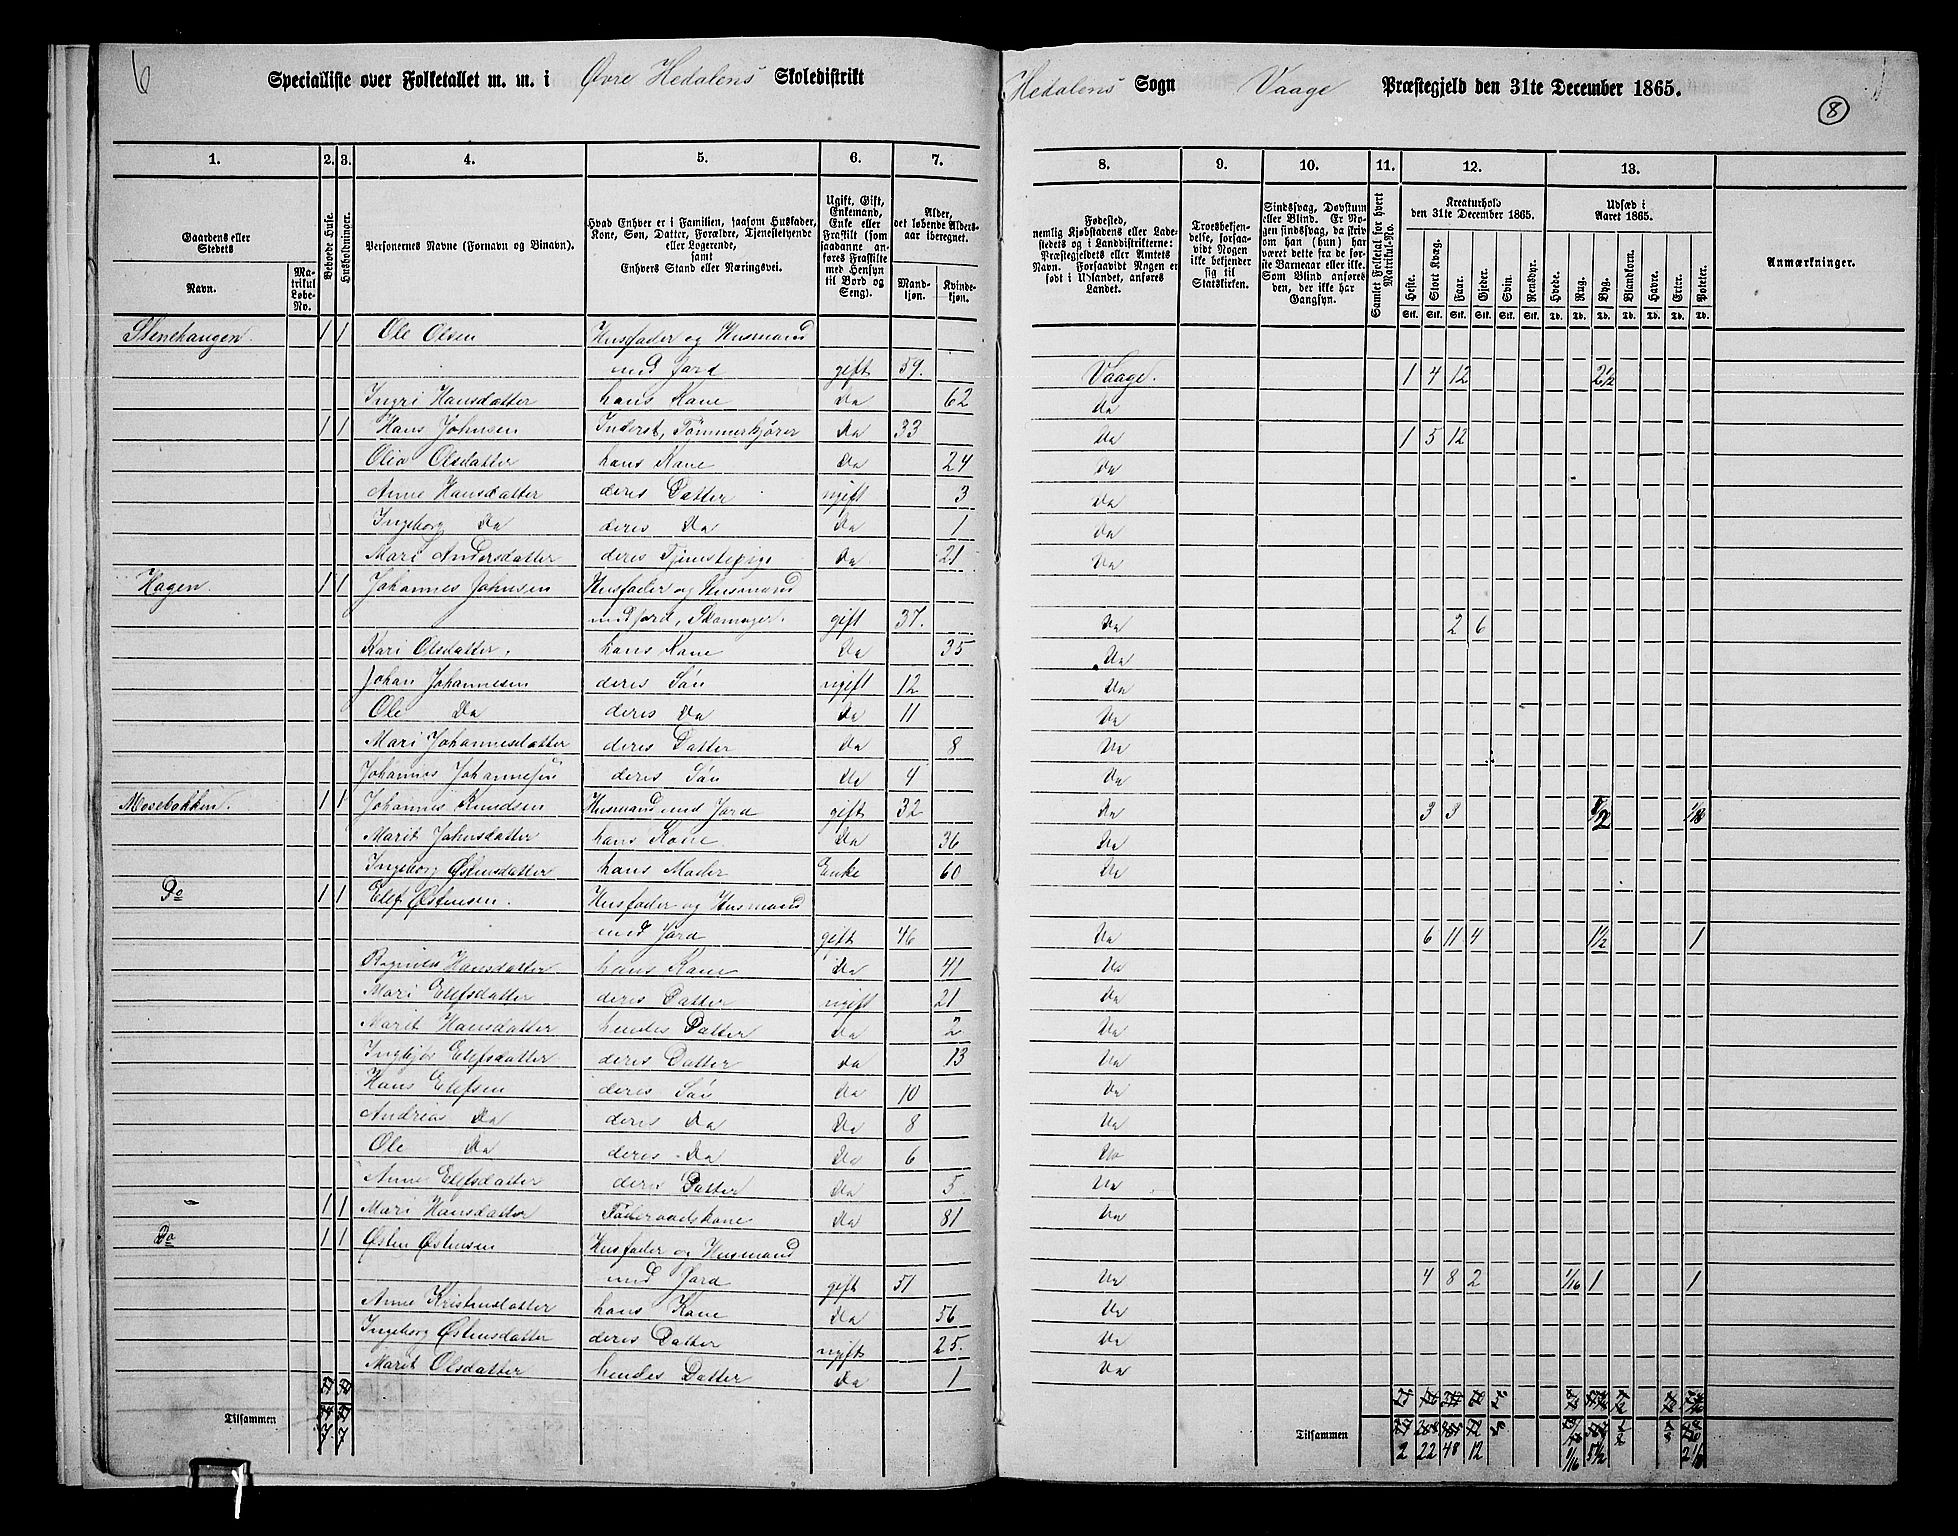 6 Specialliste over Folketallet m. m. i Øvre Hedalens Skoledistrikt Hedalens Sogn Vaage Præstegjeld den 31te December 1865. 8
1. 2. 3. 4. 5. 6. 7. 8. 9. 10. 11. 12. 13.
Gaardens eller Stedets
Navn.
Matrikul Løbe-No.
Beboede Huse.
Husholdninger.
Personernes Navne (Fornavn og Binavn).
Hvad Enhver er i Familien, saasom Husfader, Kone, Søn, Datter, Forældre, Tjenestetyende eller Logerende, samt Enhvers Stand eller Næringsvei.
Ugift, Gift, Enkemand, Enke eller Fraskilt (som saadanne anføres Fraskilte med Hensyn til Bord og Seng).
Alder, det løbende Alders-aar iberegnet.
Mandkjøn. Kvindekjøn.
Fødested, nemlig Kjøbstadens eller Ladestedets og i Landdistrikterne: Præstegjeldets eller Amtets Navn. Forsaavidt Nogen er født i Udlandet, anføres Landet.
Troesbekjendelse, forsaavidt Nogen ikke bekjender sig til Statskirken.
Sindssvag, Døvstum eller Blind. Er Nogen sindssvag, da skriv om han (hun) har været dette fra de første Barneaar eller ikke. Som Blind anføres den, der ikke har Gangsyn.
Samlet Folketal for hvert Matrikul-No.
Kreaturhold den 31te December 1865.
Heste. Stort Kvæg. Faar. Gjeder. Svin. Rensdyr.
Stk. Stk. Stk. Stk. Stk. Stk.
Udsæd i Aaret 1865.
Hvede. Rug. Byg. Blandkorn. Havre. Erter. Poteter.
Td. Td. Td. Td. Td. Td. Td.
Anmærkninger.
Stenehaugen 1 1 Ole Olsen Husfader og Husmand
med Jord gift 59. Vaage. 1 4 12 2½
Ingri Hansdatter hans Kone Do 62 do
1 1 Hans Johnsen Inderst, Tømmerkjører Do 33 Do 1 5 12
Olia Olsdatter hans Kone Do 24 Do
Anne Hansdatter deres Datter ugift 3 Do
Ingeborg Do deres Do Do 1 Do
Mari Andersdatter deres Tjenestepige Do 21 Do
Hagen. 1 1 Johannes Johnsen Husfader og Husmand
med Jord, Skomager. gift 37. Do 2 6
Kari Olsdatter. hans Kone Do 35 Do
Johan Johannesen deres Søn ugift 12 Do
Ole Do deres Do Do 11 Do
Mari Johannesdatter deres Datter Do 8 Do
Johannes Johannesen deres Søn Do 4 Do
Mosebakken. 1 1 Johannes Knudsen Husmand med Jord gift 32 Do 3 3
Marit Johnsdatter hans Kone. Do 36 Do
Ingeborg Østensdatter hans Moder Enke 60 Do
Do 1 1 Elef Østensen. Husfader og Husmand
med Jord gift 46 Do 6 11 4 1½ 1
Ragnild Hansdatter hans Kone Do 41 Do
Mari Elefsdatter deres Datter ugift 21 Do
Marit Hansdatter hendes Datter Do 2 Do
Ingbjør Elefsdatter deres Datter do 13 Do
Hans Elefsen deres Søn Do 10 Do
Andreas Do deres Do Do 8 Do
Ole Do deres Do Do 6 Do
Anne Elefsdatter deres Datter Do 5 Do
- 1 1 Mari Hansdatter Føderaadskone Do 81 Do
Do 1 1 Østen Østensen Husfader og Husmand
med Jord gift 51 Do 4 8 2 1/16 1 1
Anne Kristensdatter hans Kone Do 56 Do
Ingeborg Østensdatter deres Datter ugift 25. Do
Marit Olsdatter hendes Datter Do 1 Do
Tilsammen 7. 7 Tilsammen 2 22 48 12 1/16 5½